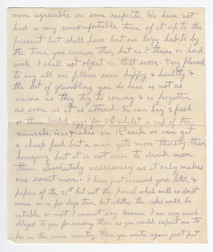 more agreeable in some respects. We have not
had a very uncomfortable time of it up to the
present but shall have lost our lazy habits by
the time you receive this, but as I thrive on hard
work I shall not object on that score. Very pleased
to say all our fellows seem happy & healthy &
the bit of grumbling you do hear is not as
sincere as they try to convey & is forgotten
as soon as it is uttered. We can buy a fresh
or them boiled eggs for whilst a cup of the
minerals, ices & cakes are each so can get
a cheap feed but a man gets more thirsty than
hungry but it is not wise to drink more
than absolutely necessary as it only makes
one sweat more. I have just received your letter &
papers of the but not the parcel which will no doubt
arrive in a few days time but doubt the cakes will be
eatable or not I cannot say. However I am very much
obliged to you for sending them as you would expect me to
be in the same country. When you write again just put